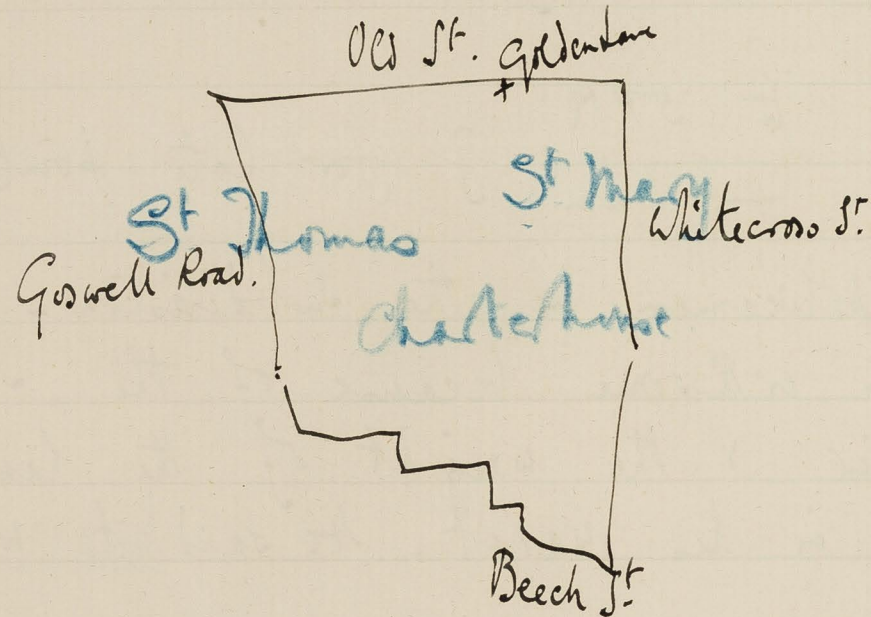 Old St. Golden Lane
St Mary
Whitecross St.
St Thomas
Goswell Road.
Charterhouse
Beech St.